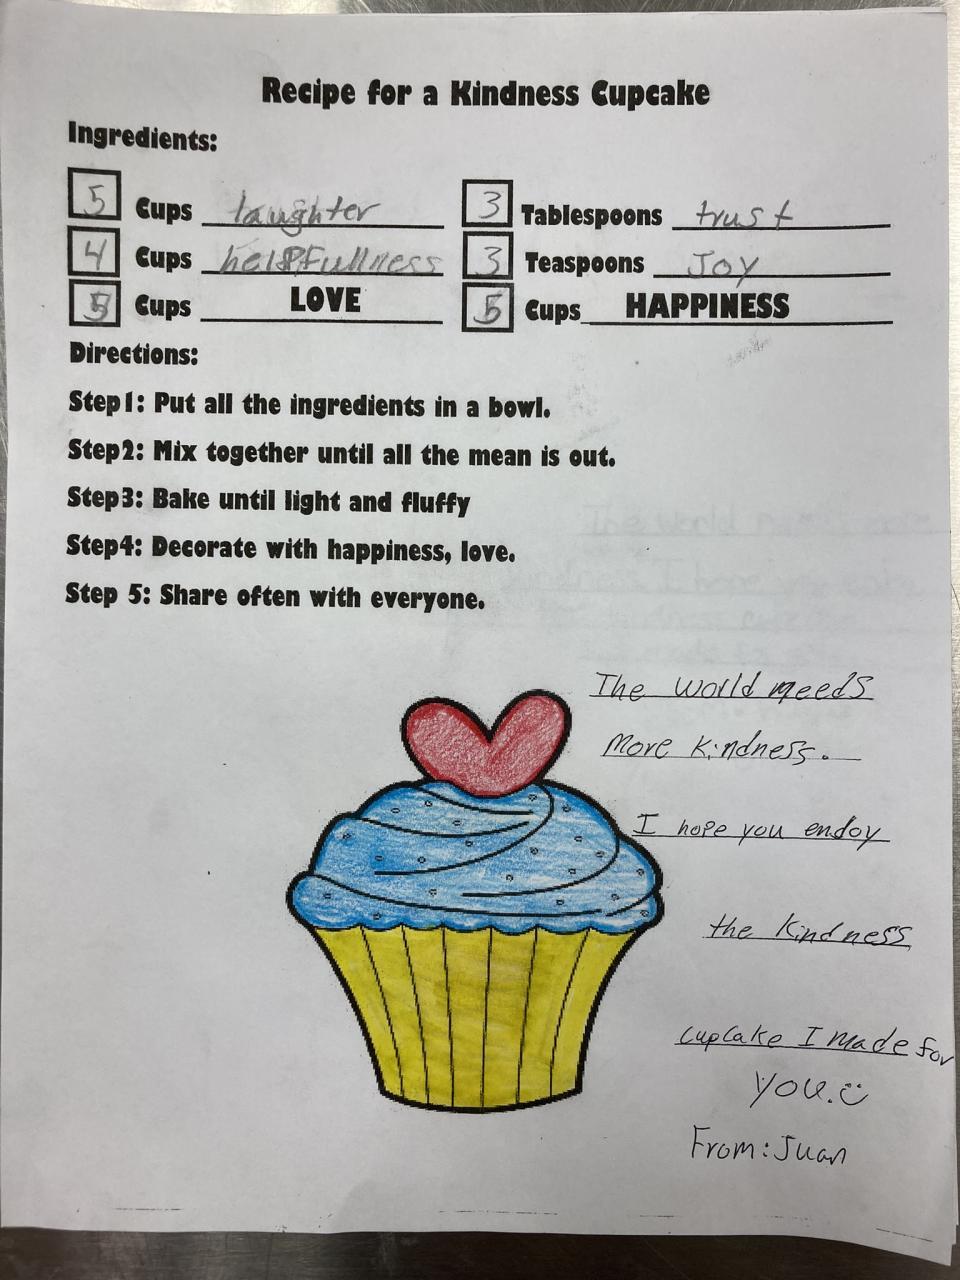 Recipe for a Kindness Cupcake
Ingredients:
5 Cups laughter 3 Tablespoons trust
4 Cups helpfullness 3 Teaspoons Joy
5 Cups LOVE 5 Cups HAPPINESS
Directions:
Step1: Put all the ingredients in a bowl.
Step2: Mix together until all the mean is out.
Step3: Bake until light and fluffy
Step4: Decorate with happiness, love.
Step 5: Share often with everyone.
The world needs
more kindness.
I hope you endoy
the kindness
cupcake I made for
you.
From: Juan